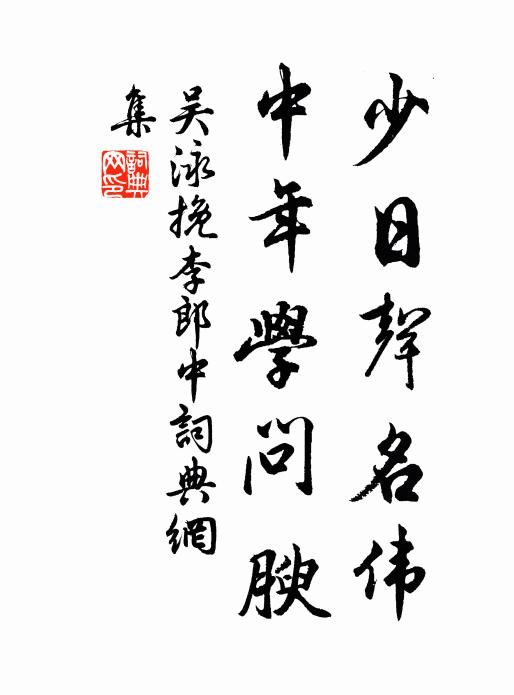 少日聲名伟
中年學问腴
吴泳挽李郎中詞典網
集
詞典
网印